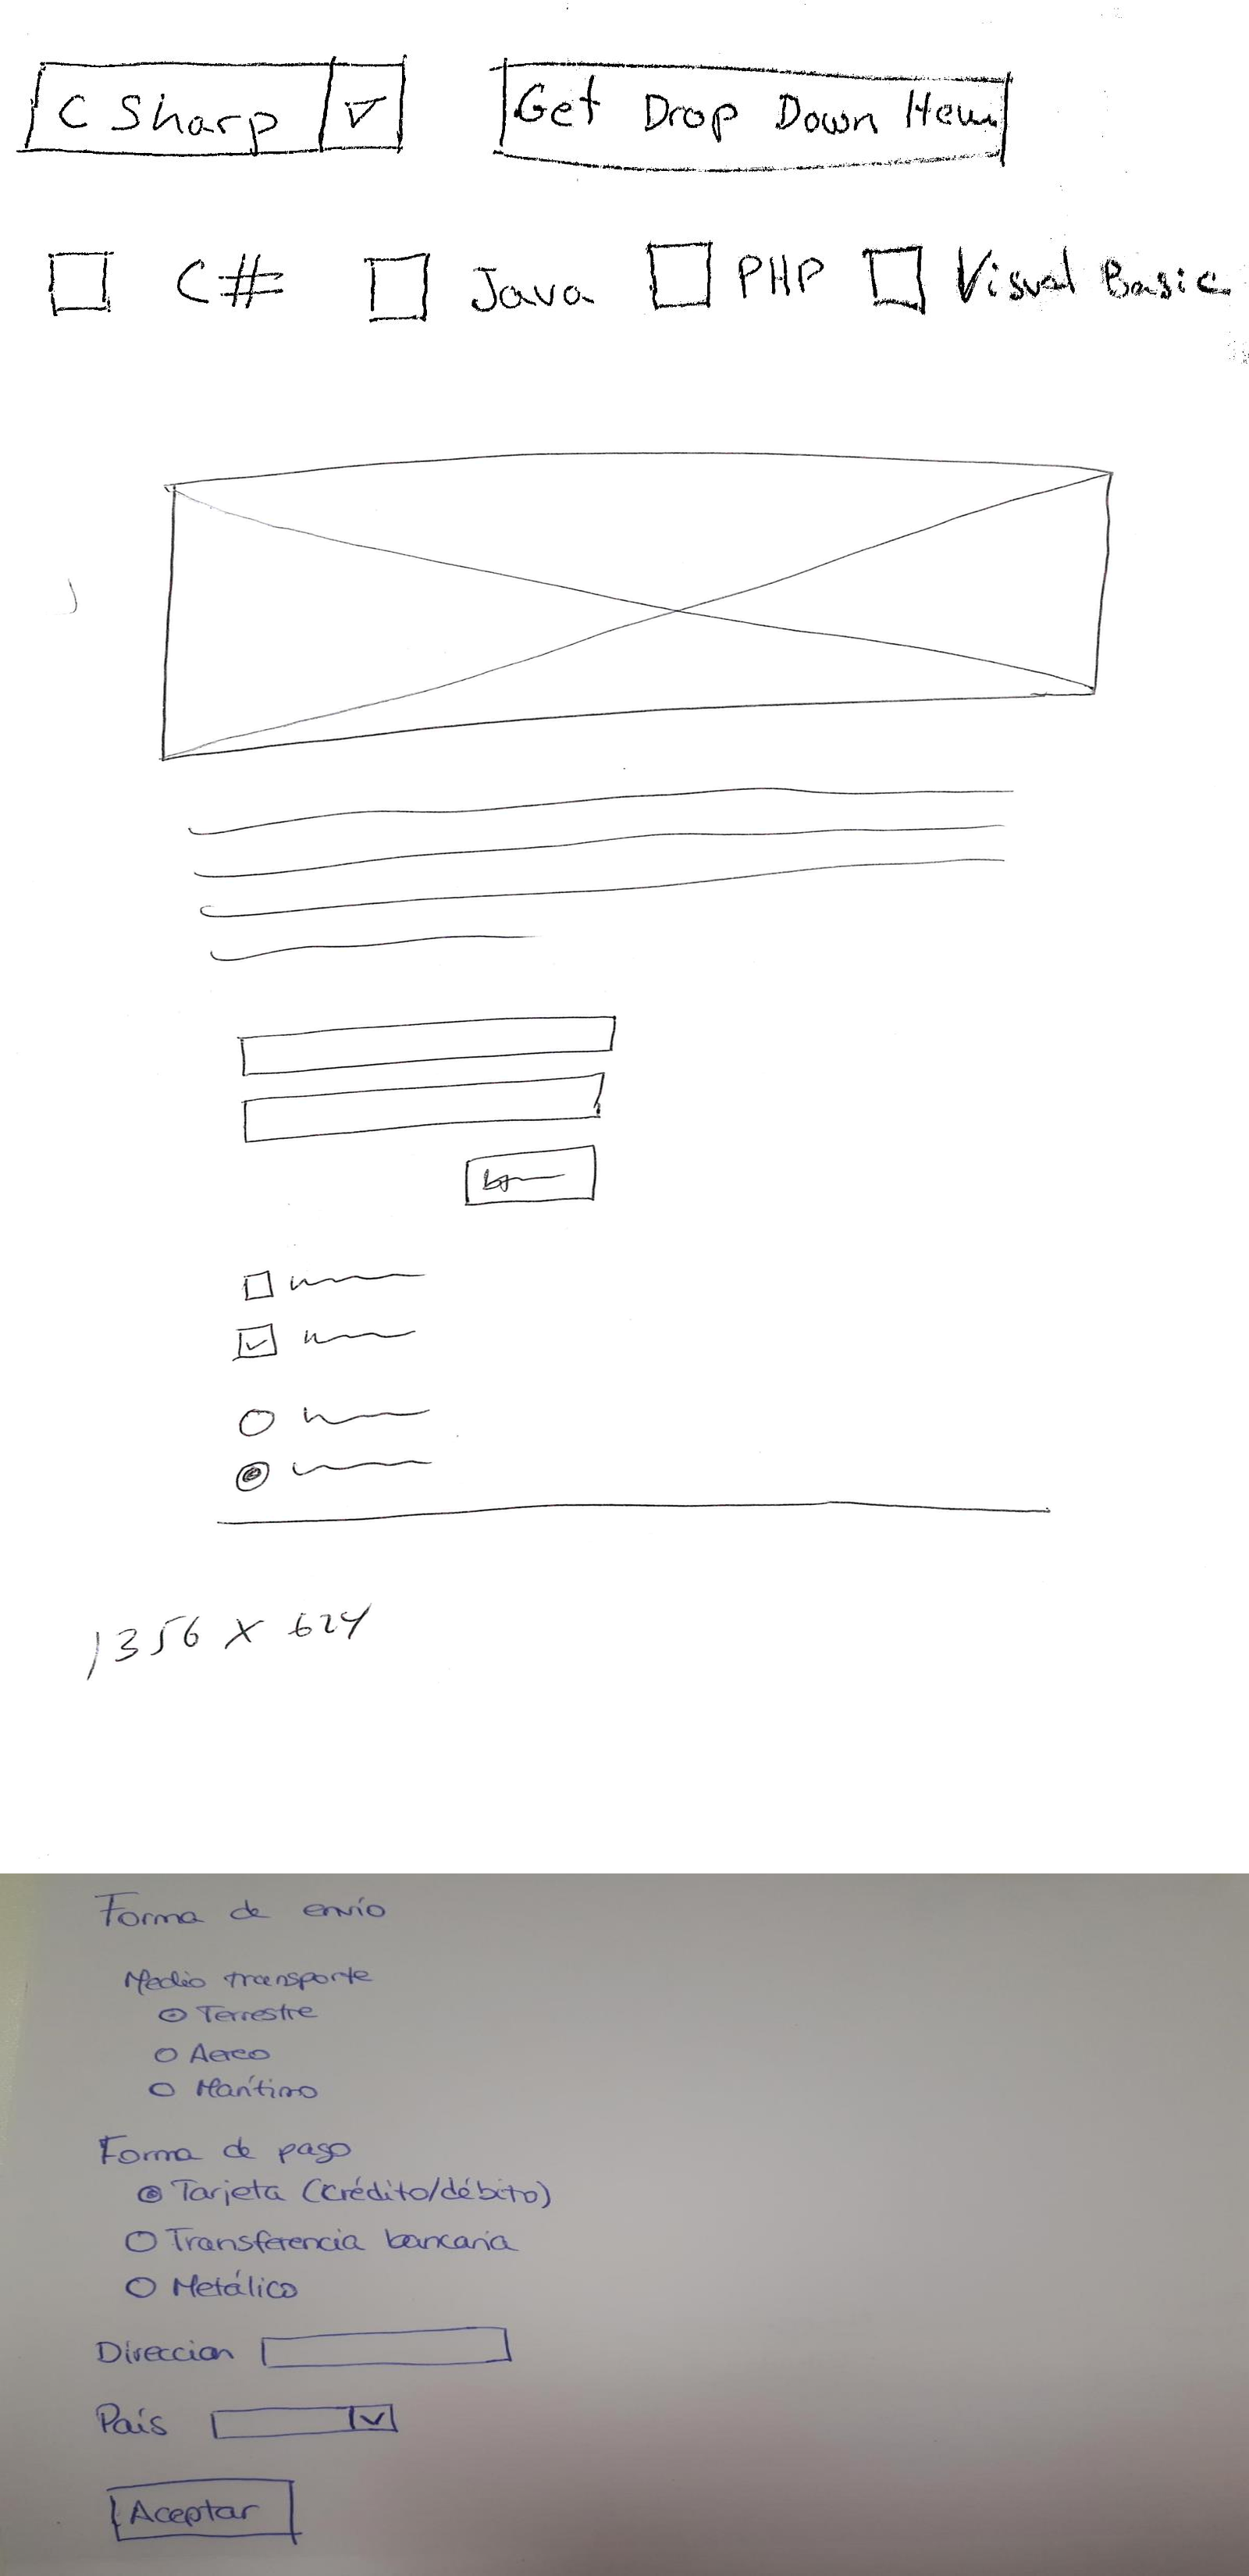 C Sharp Get Drop Down Item
C# Java PHP Visual Basic
1356 x 624
Forma de envío
Medio transporte
Terrestre
Aereo
Marítimo
Forma de pago
Tarjeta (crédito/débito)
Transferencia bancaria
Metálico
Direccion
País
Aceptar